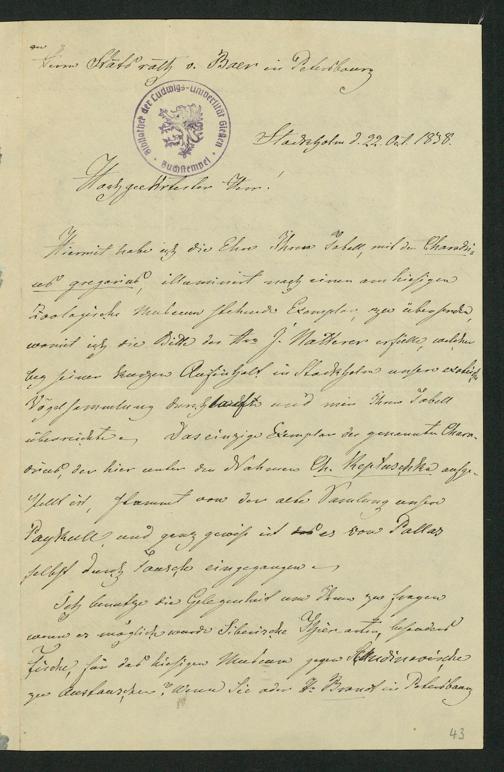 an
Herrn Statsrath v. Baer in Petersbourg
Bibliothek der Ludwigs-Universität Gießen
Buchstempel
Stockholm d. 22. Oct. 1838.
Hochgeehrtester Herr!
Hiermit habe ich die Ehre Ihnen Tabell, mit den Charadri-
us gregarius, illuminert nach einen am hiesigen
Zoologische Museum stehende Exemplar, zu übersenden,
womit ich die Bitte des Hrn J. Natterer erfülle, welcher
bey seiner kurzen Aufenthalt in Stockholm unsere
Vögelsammlung und mir Ihrer Tabell
überreichte. Das einzige Exemplar der genannten Chara-
drius, der hier unter den Nahmen Ch. Keptuschka aufge-
stellt ist, stammt von der alte Samlung unsere
Paykull, und ganz gewiss ist es von Pallas
selbst durch Tausch eingegangen.
Ich benutze die Gelegenheit um Ihnen zu fragen
wenn es möglich wurde Siberische Thier arten, besonders
Fische, für das hiesigen Museum gegen Skandinavische
zu austauschen? Wenn Sie oder Dr Brandt in Petersbourg
43